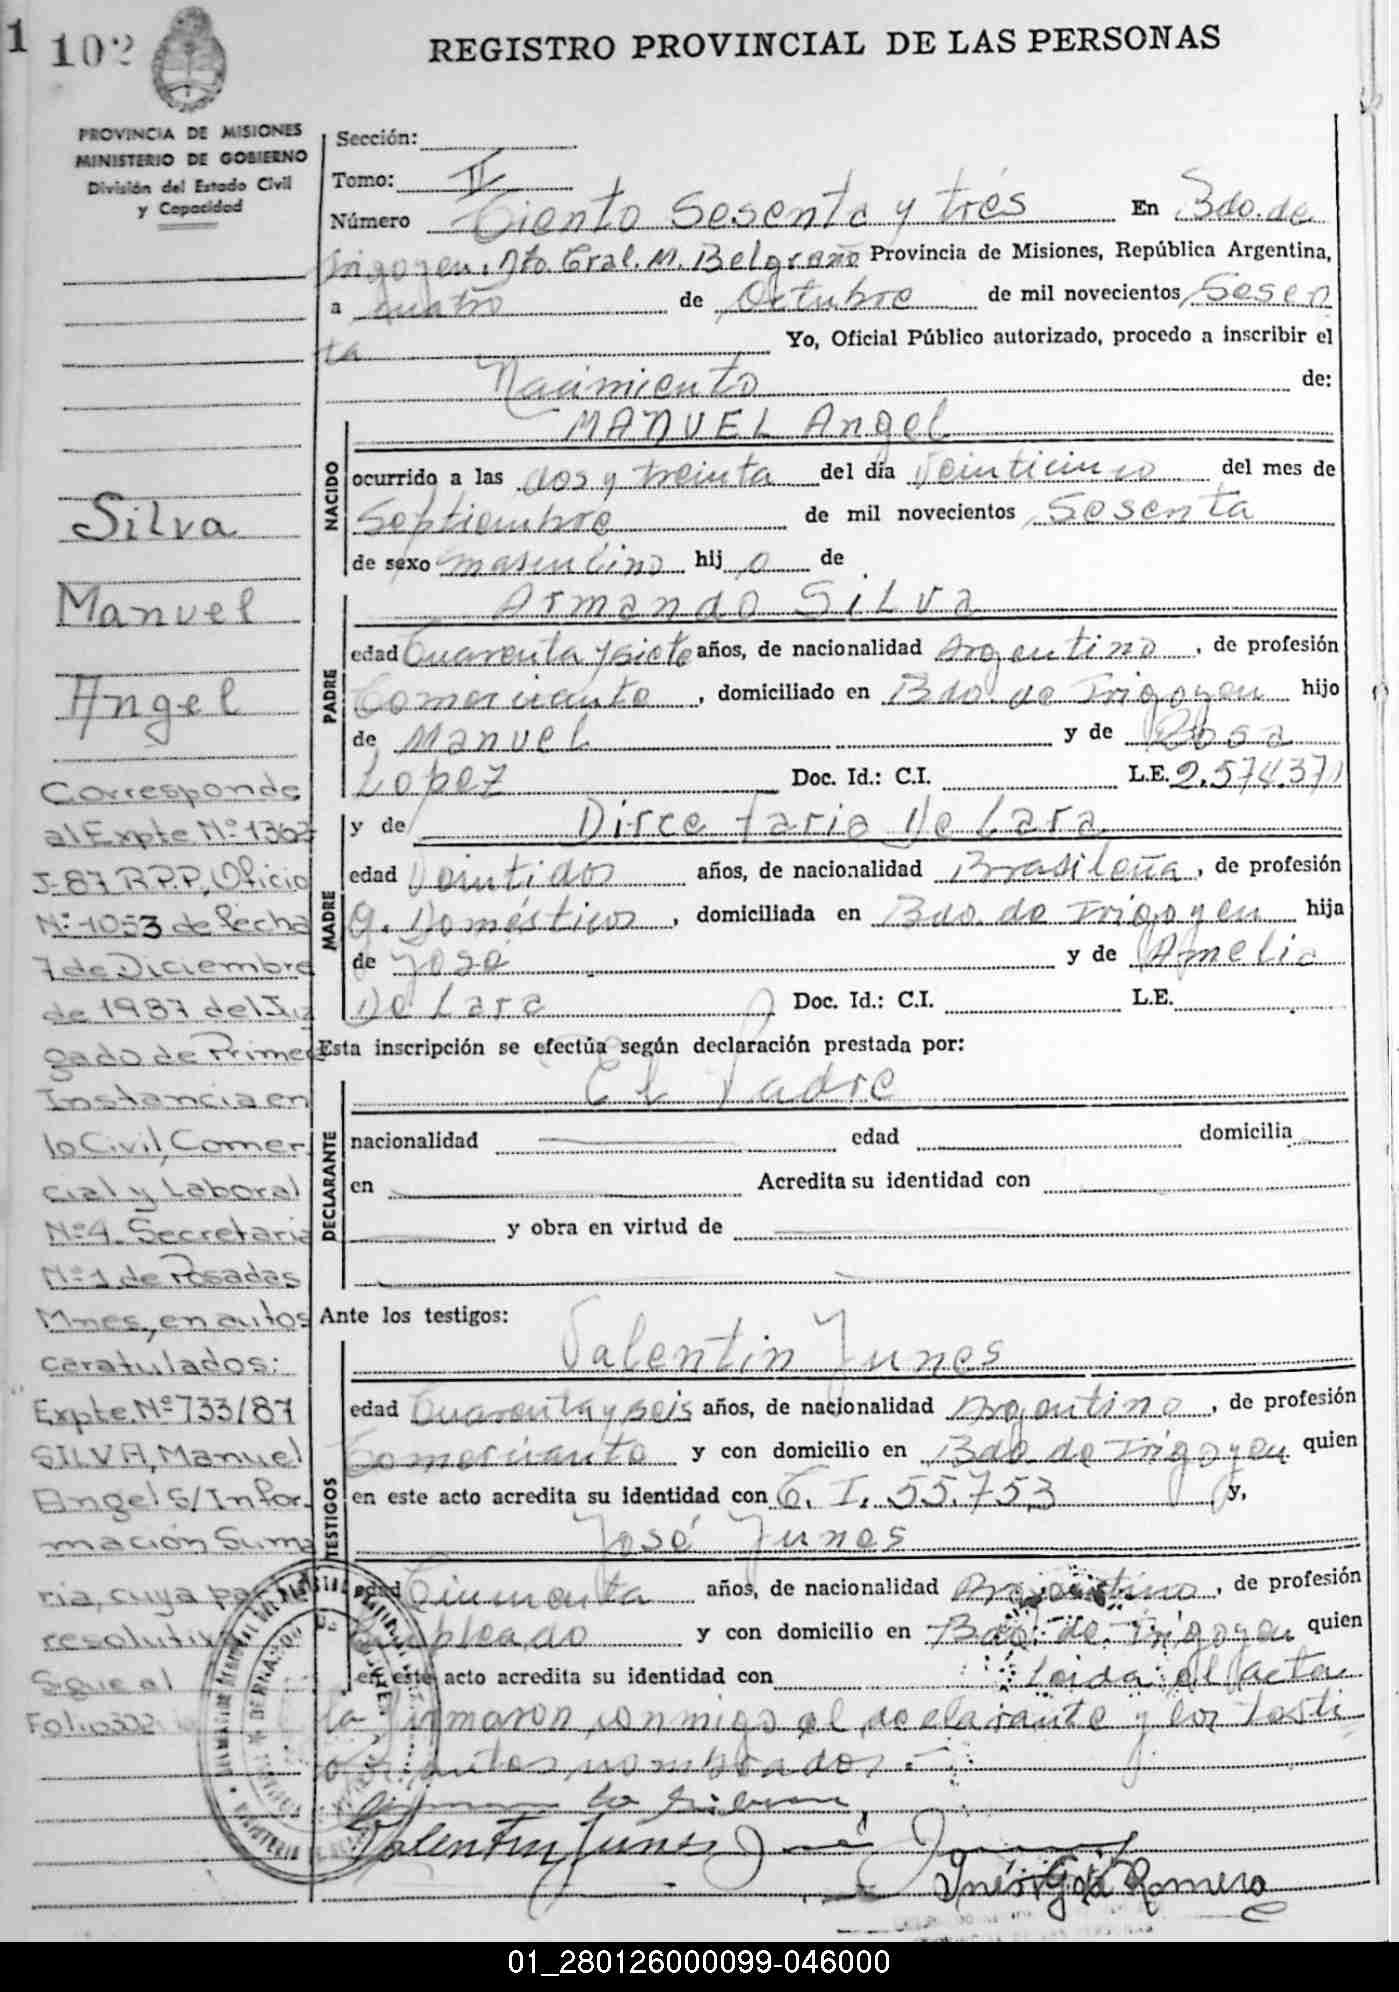 1
102
REGISTRO PROVINCIAL DE LAS PERSONAS
PROVINCIA DE MISIONES
MINISTERIO DE GOBIERNO
División del Estado Civil
y Capacidad
Silva
Manuel
Angel
Corresponde
al Expte Nº 1363
J-87 R.P.P, Oficio
Nº 1053 de fecha
7 de Diciembre
de 1987 del Juz
gado de Prime
Instancia en
lo Civil, Comer-
cial y Laboral
Nº 4 Secretaria
Nº 1 de Posadas
Mnes, en autos
caratulados:
Expte. Nº 733/87
SILVA, Manuel
Angel S/Infor-
mación Suma
ria, cuya par
resolutiv
Sigue al
Folio 322
Sección:
Tomo: II
Número Ciento Sesenta y trés En Bdo. de
Irigoyen. Dto. Gral. M. Belgrano Provincia de Misiones, República Argentina,
a cuatro de Octubre de mil novecientos Sesen
ta Yo, Oficial Público autorizado, procedo a inscribir el
Nacimiento de:
NACIDO
MANUEL Angel
ocurrido a las dos y treinta del día Veinticinco del mes de
Septiembre de mil novecientos Sesenta
de sexo masculino hij o de
PADRE
Armando Silva
edad Cuarenta y siete años, de nacionalidad Argentino, de profesión
Comerciante, domiciliado en Bdo. de Irigoyen hijo
de Manuel y de Rosa
Lopez Doc. Id.: C.I. L.E. 2.574.371
MADRE
y de Dirce Faria De Lara
edad Veintidos años, de nacionalidad Brasileña, de profesión
Q. Domésticos, domiciliada en Bdo. de Irigoyen hija
de José y de Amelia
De Lara Doc. Id.: C.I. L.E.
Esta inscripción se efectúa según declaración prestada por:
DECLARANTE
El Padre
nacionalidad edad domicilia
en Acredita su identidad con
y obra en virtud de
Ante los testigos:
TESTIGOS
Valentin Junes
edad Cuarenta y seis años, de nacionalidad Argentino, de profesión
Comerciante y con domicilio en Bdo. de Irigoyen quien
en este acto acredita su identidad con C. I. 55.753 y,
José Junes
edad Cincuenta años, de nacionalidad Argentino, de profesión
Empleado y con domicilio en Bdo. de Irigoyen quien
en este acto acredita su identidad con Leida el acta
la firmaron conmigo el declarante y los testi
gos antes nombrados.-
Valentin Junes José
Inés Romero
01_280126000099-046000